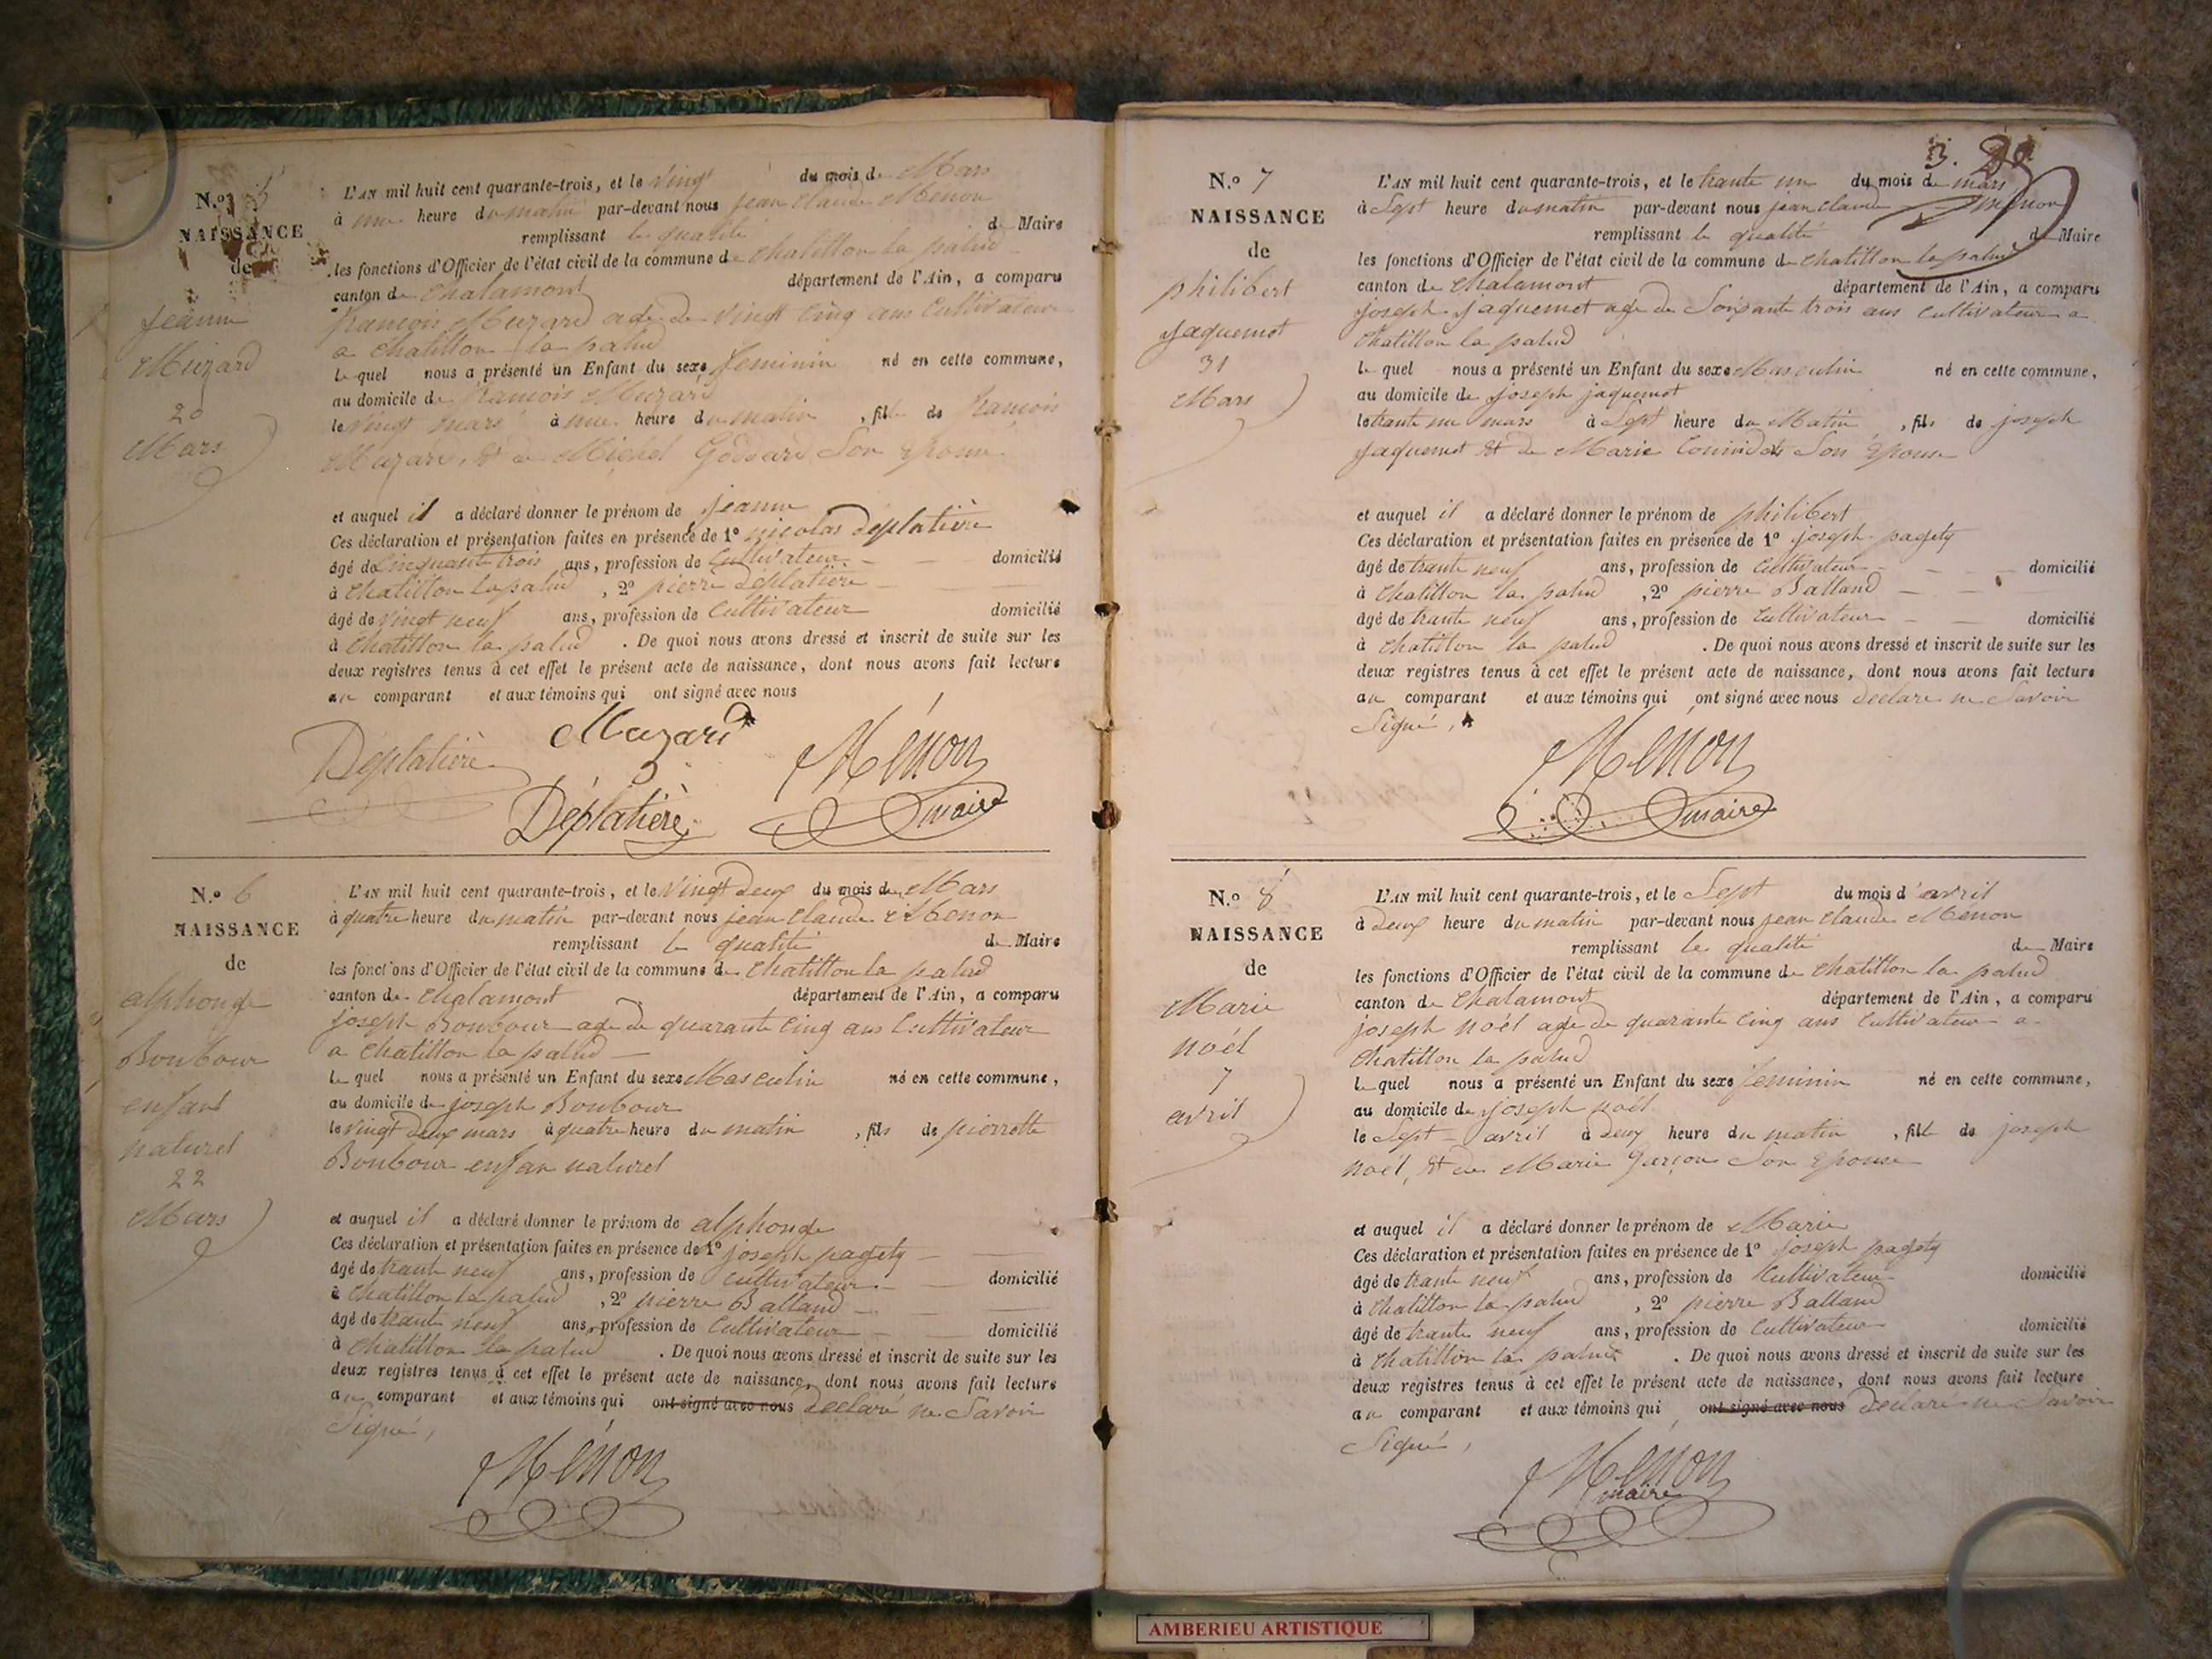 N.o 5
NAISSANCE
de
jeanne
Muzard
20
Mars
L'AN mil huit cent quarante-trois, et le Vingt du mois de Mars
à une heure du matin par-devant nous jean Claude Menon
remplissant la qualité de Maire
les fonctions d'Officier de l'état civil de la commune de Chatillon la palud
canton de Chalamont département de l'Ain, a comparu
francois Muzard age de Vingt Cinq ans Cultivateur
a Chatillon la palud
le quel nous a présenté un Enfant du sexe feminin né en cette commune,
au domicile de francois Muzard
le Vingt mars à une heure du matin, fille de francois
Muzard, & de Michel Goddard Son Epouse
et auquel il a déclaré donner le prénom de jeanne
Ces déclaration et présentation faites en présence de 1o nicolas Déplatière
âgé de Cinquante trois ans, profession de Cultivateur domicilié
à Chatillon la palud, 2o pierre Déplatière
âgé de Vingt neuf ans, profession de Cultivateur domicilié
à Chatillon la palud. De quoi nous avons dressé et inscrit de suite sur les
deux registres tenus à cet effet le présent acte de naissance, dont nous avons fait lecture
au comparant et aux témoins qui ont signé avec nous
Déplatière Muzard Ménon
Déplatière maire
N.o 6
NAISSANCE
de
alphonse
Bonbour
enfant
naturel
22
Mars
L'AN mil huit cent quarante-trois, et le Vingt Deux du mois de Mars
à quatre heure du matin par-devant nous jean Claude Menon
remplissant la qualité de Maire
les fonctions d'Officier de l'état civil de la commune de Chatillon la palud
canton de Chalamont département de l'Ain, a comparu
joseph Bonbour age de quarante Cinq ans Cultivateur
a Chatillon la palud
le quel nous a présenté un Enfant du sexe Masculin né en cette commune,
au domicile de joseph Bonbour
le Vingt Deux mars à quatre heure du matin, fils de pierrette
Bonbour enfan naturel
et auquel il a déclaré donner le prénom de alphonse
Ces déclaration et présentation faites en présence de 1o joseph pagety
âgé de trante neuf ans, profession de Cultivateur domicilié
à Chatillon la palud, 2o pierre Balland
âgé de trante neuf ans, profession de Cultivateur domicilié
à Chatillon la palud. De quoi nous avons dressé et inscrit de suite sur les
deux registres tenus à cet effet le présent acte de naissance, dont nous avons fait lecture
au comparant et aux témoins qui ont signé avec nous Déclaré ne Savoir
Signé,
Ménon
3.
N.o 7
NAISSANCE
de
philibert
jaquemet
31
Mars
L'AN mil huit cent quarante-trois, et le trante un du mois de mars
à Sept heure du matin par-devant nous jean claude Menon
remplissant la qualité de Maire
les fonctions d'Officier de l'état civil de la commune de Chatillon la palud
canton de Chalamont département de l'Ain, a comparu
joseph jaquemet age de Soixante trois ans Cultivateur a
Chatillon la palud
le quel nous a présenté un Enfant du sexe Masculin né en cette commune,
au domicile de joseph jaquemet
le trante un mars à Sept heure du Matin, fils de joseph
jaquemet & de Marie Son Epouse
et auquel il a déclaré donner le prénom de philibert
Ces déclaration et présentation faites en présence de 1o joseph pagety
âgé de trante neuf ans, profession de Cultivateur domicilié
à Chatillon la palud, 2o pierre Balland
âgé de trante neuf ans, profession de Cultivateur domicilié
à Chatillon la palud. De quoi nous avons dressé et inscrit de suite sur les
deux registres tenus à cet effet le présent acte de naissance, dont nous avons fait lecture
au comparant et aux témoins qui ont signé avec nous Declare ne Savoir
Signé,
Ménon
maire
N.o 8
NAISSANCE
de
Marie
noél
7
avril
L'AN mil huit cent quarante-trois, et le Sept du mois d'avril
à Deux heure du matin par-devant nous jean Claude Ménon
remplissant la qualité de Maire
les fonctions d'Officier de l'état civil de la commune de Chatillon la palud
canton de Chalamont département de l'Ain, a comparu
joseph noél age de quarante Cinq ans Cultivateur a
Chatillon la palud
le quel nous a présenté un Enfant du sexe feminin né en cette commune,
au domicile de joseph noél
le Sept avril à Deux heure du matin, fille de joseph
noél, & de Marie garçon Son Epouse
et auquel il a déclaré donner le prénom de Marie
Ces déclaration et présentation faites en présence de 1o joseph pagety
âgé de trante neuf ans, profession de Cultivateur domicilié
à Chatillon la palud, 2o pierre Balland
âgé de trante neuf ans, profession de Cultivateur domicilié
à Chatillon la palud. De quoi nous avons dressé et inscrit de suite sur les
deux registres tenus à cet effet le présent acte de naissance, dont nous avons fait lecture
au comparant et aux témoins qui ont signé avec nous Declare ne Savoir
Signé,
Ménon
maire
AMBERIEU ARTISTIQUE